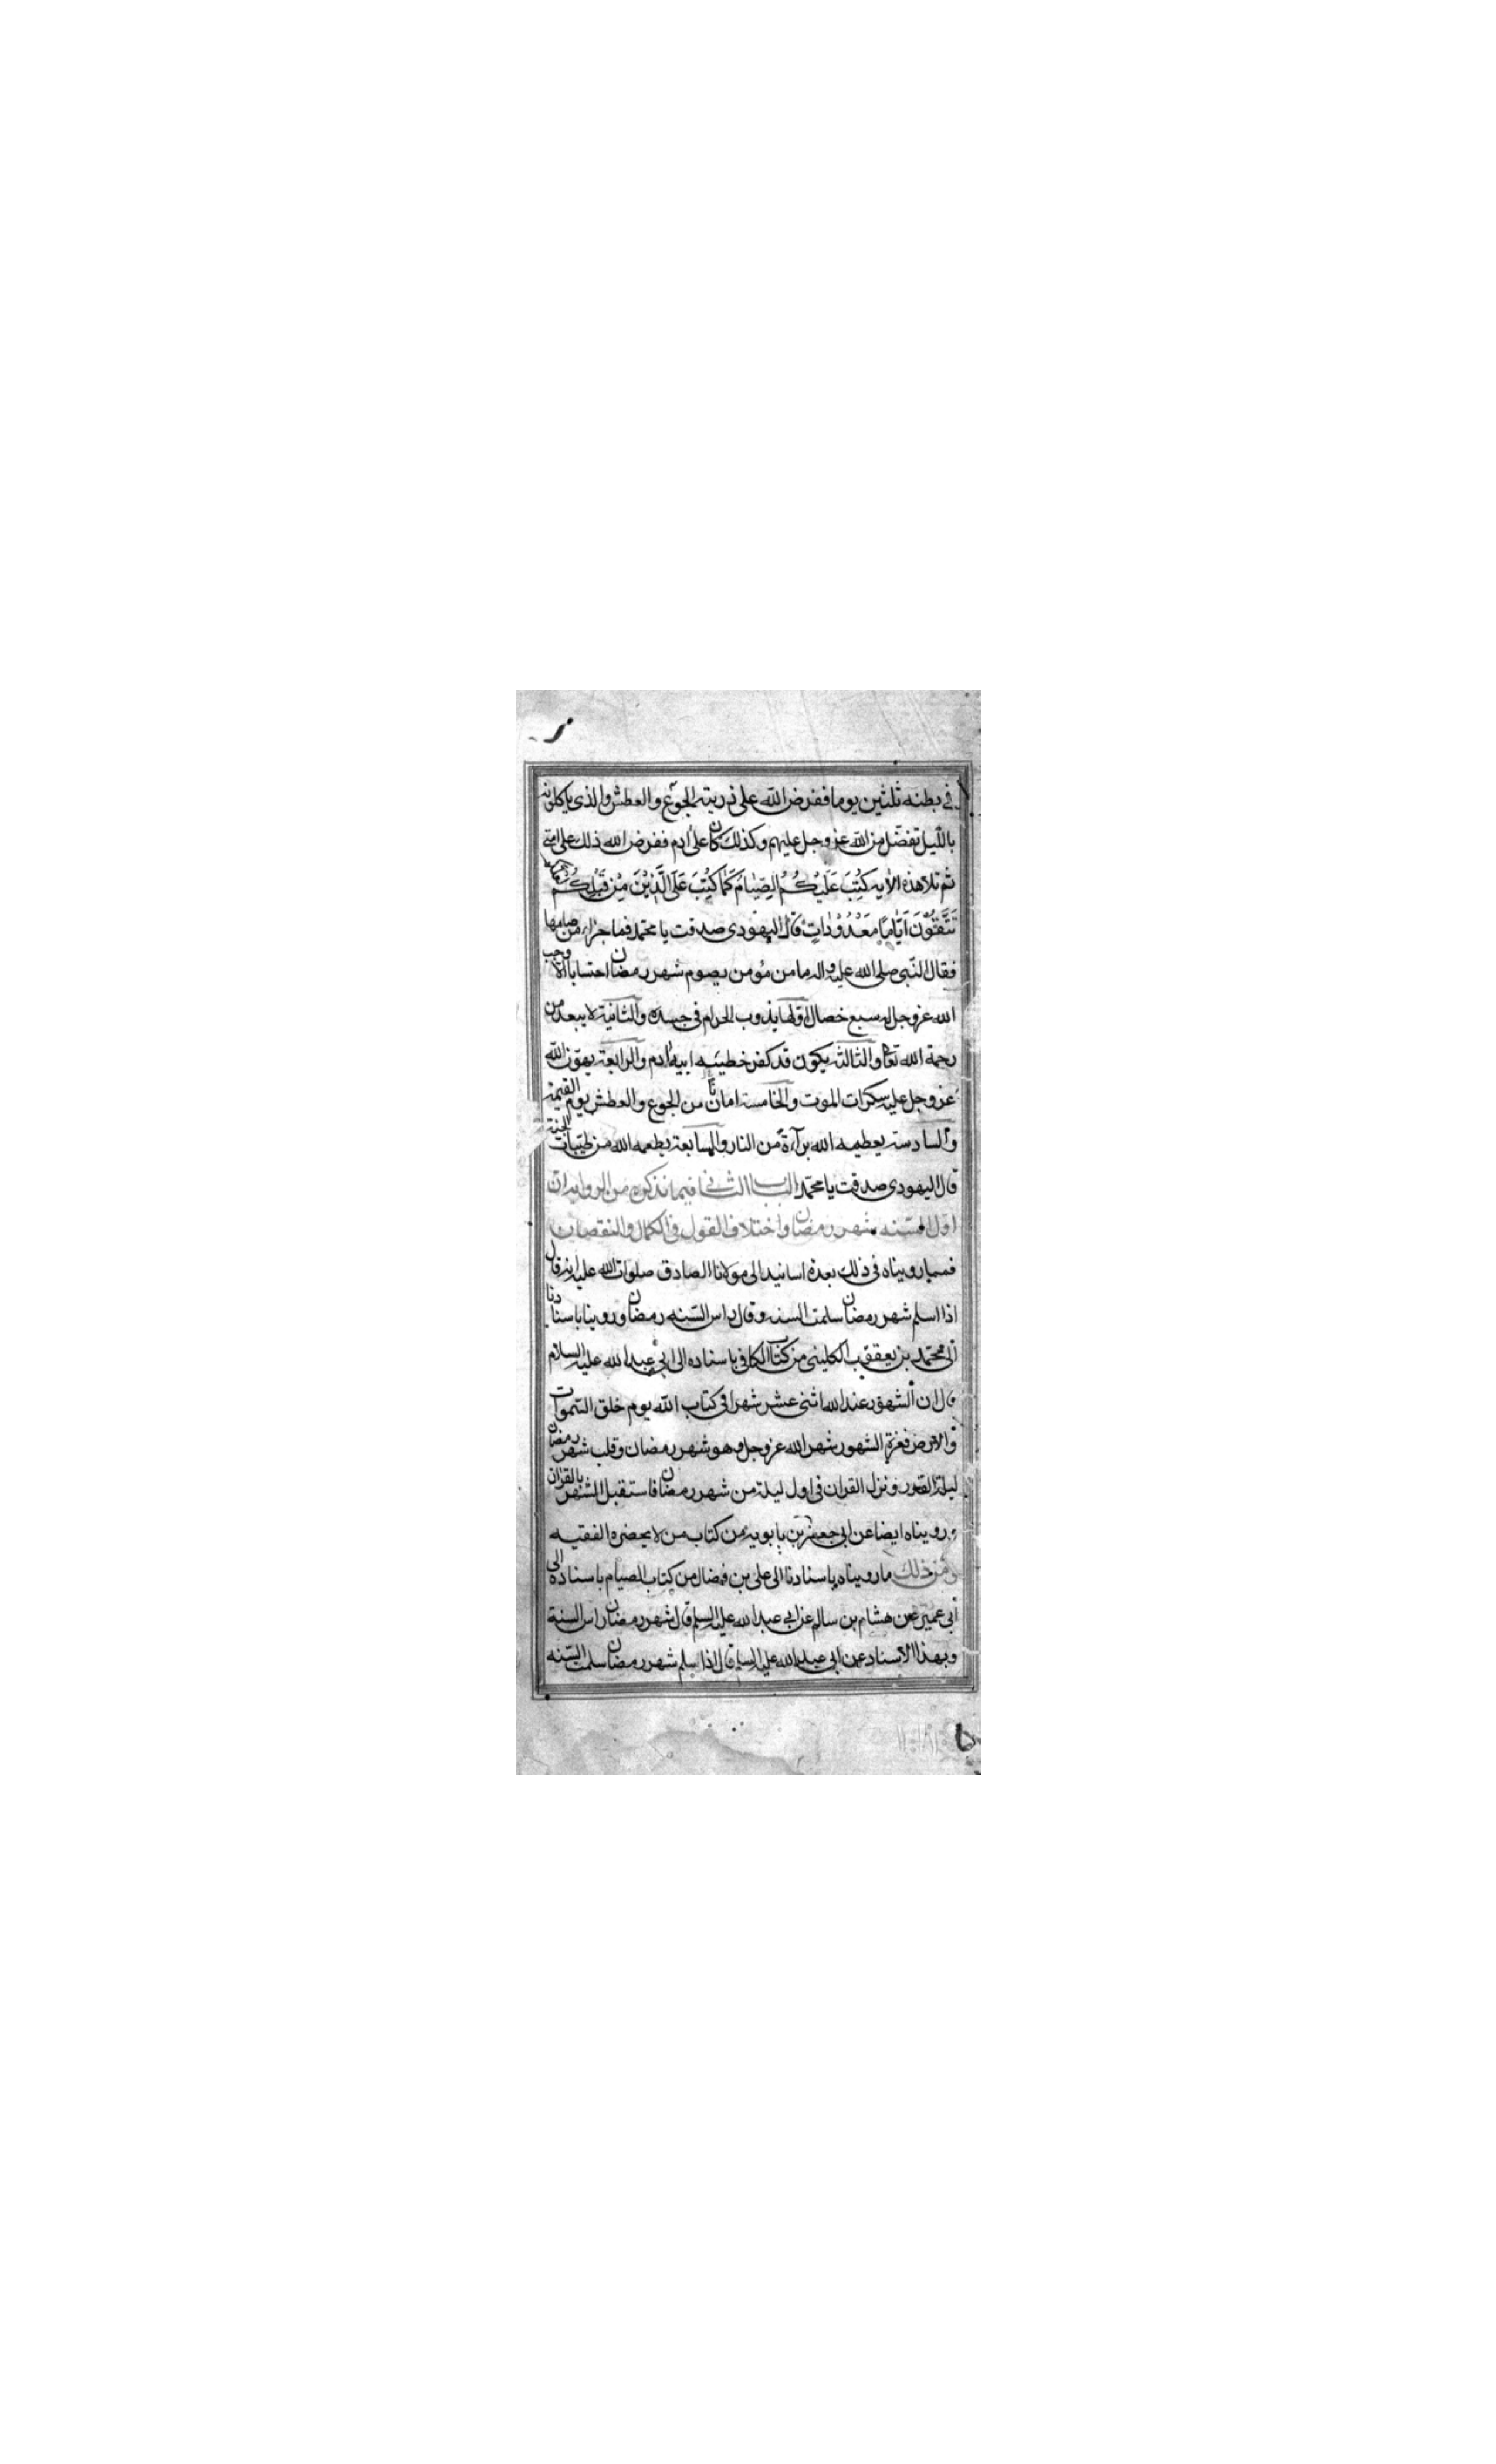 في بطنه ثلثين يوما ففرض الله على ذريته الجوع والعطش والذي ياكلونه
بالليل تفضل من الله عز وجل عليهم وكذلك كان على ادم ففرض الله ذلك على امتي
ثم تلا هذه الاية كُتِبَ عَلَيْكُمُ الصِّيَامُ كَمَا كُتِبَ عَلَى الَّذِينَ مِنْ قَبْلِكُمْ لعلكم
تَتَّقُونَ اَيَّامًا مَعْدُودَاتٍ قال اليهودي صدقت يا محمد فما جزاء من صامها
فقال النبي صلى الله عليه واله ما من مؤمن يصوم شهر رمضان احتسابا الا وجب
الله عز وجل له سبع خصال اولها يذوب الحرام في جسده والثانية لا يبعد من
رحمة الله تعا والثالثة يكون قد كفر خطيئه ابيه ادم والرابعة يهون الله
عز وجل عليه سكرات الموت والخامسة امانا من الجوع والعطش يوم القيمة
والسادسة يعطيه الله برآءة من النار والسابعة يطعمه الله من طيبات الجنة
قال اليهودي صدقت يا محمد الباب الثاني فيما نذكره من الرواية ان
اول السنه شهر رمضان واختلاف القول في الكمال والنقصان
فمما رويناه في ذلك بعدة اسانيد الى مولانا الصادق صلوات الله عليه انه قال
اذا اسلم شهر رمضان سلمت السنه وقال راس السنه رمضان وروينا باسنادنا
الى محمد بن يعقوب الكليني من كتاب الكافي باسناده الى ابي عبد الله عليه السلام
قال ان الشهور عند الله اثنى عشر شهرا في كتاب الله يوم خلق السموات
والارض فغرة الشهور شهر الله عز وجل وهو شهر رمضان وقلب شهر رمضان
ليلة القدر ونزل القران في اول ليلة من شهر رمضان فاستقبل الشهر بالقران
ورويناه ايضا عن ابي جعفر بن بابويه من كتاب من لا يحضره الفقيه
ومن ذلك ما رويناه باسنادنا الى علي بن فضال من كتاب الصيام باسناده الى
ابي عمير عن هشام بن سالم عن ابي عبد الله عليه السلم قال شهر رمضان راس السنة
وبهذا الاسناد عن ابي عبد الله عليه السلم قال اذا سلم شهر رمضان سلمت السنه